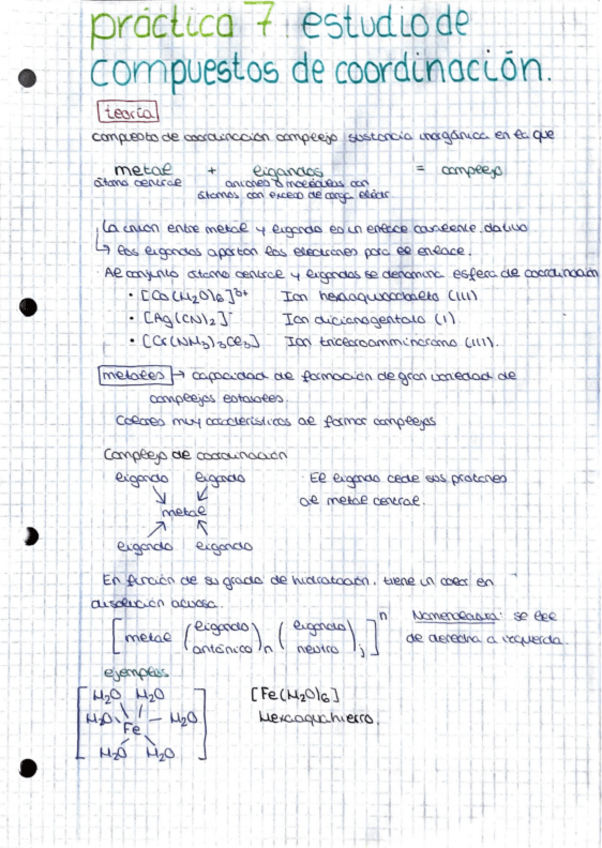 práctica 7: estudio de
compuestos de coordinación.
teoría
compuesto de coordinación complejo sustancia inorgánica en la que
metal + ligandos = complejo
átomo central aniones o moléculas con
átomos con exceso de carga
La unión entre metal y ligando es un enlace covalente dativo
↳ los ligandos aportan los electrones para el enlace.
Al conjunto átomo central y ligandos se denomina esfera de coordinación
• [Co(H₂O)6]3+ Ion hexaaquocobalto (III)
• [Ag(CN)2]- Ion dicianoargentato (I)
• [Cr(NH3)3Cl3] Ion triclorotriammincromo (III).
metales → capacidad de formación de gran variedad de
complejos estables.
Colores muy característicos al formar complejos
Complejo de coordinación
ligando ligando · El ligando cede sus protones
metal al metal central.
ligando ligando
En función de su grado de hidratación, tiene un color en
disolución acuosa.
[metal (ligando aniónico)n (ligando neutro)j]n Nomenclatura: se lee
de derecha a izquierda.
ejemplos
H2O H2O [Fe(H2O)6]
H2O Fe H2O Hexaaquahierro.
H2O H2O